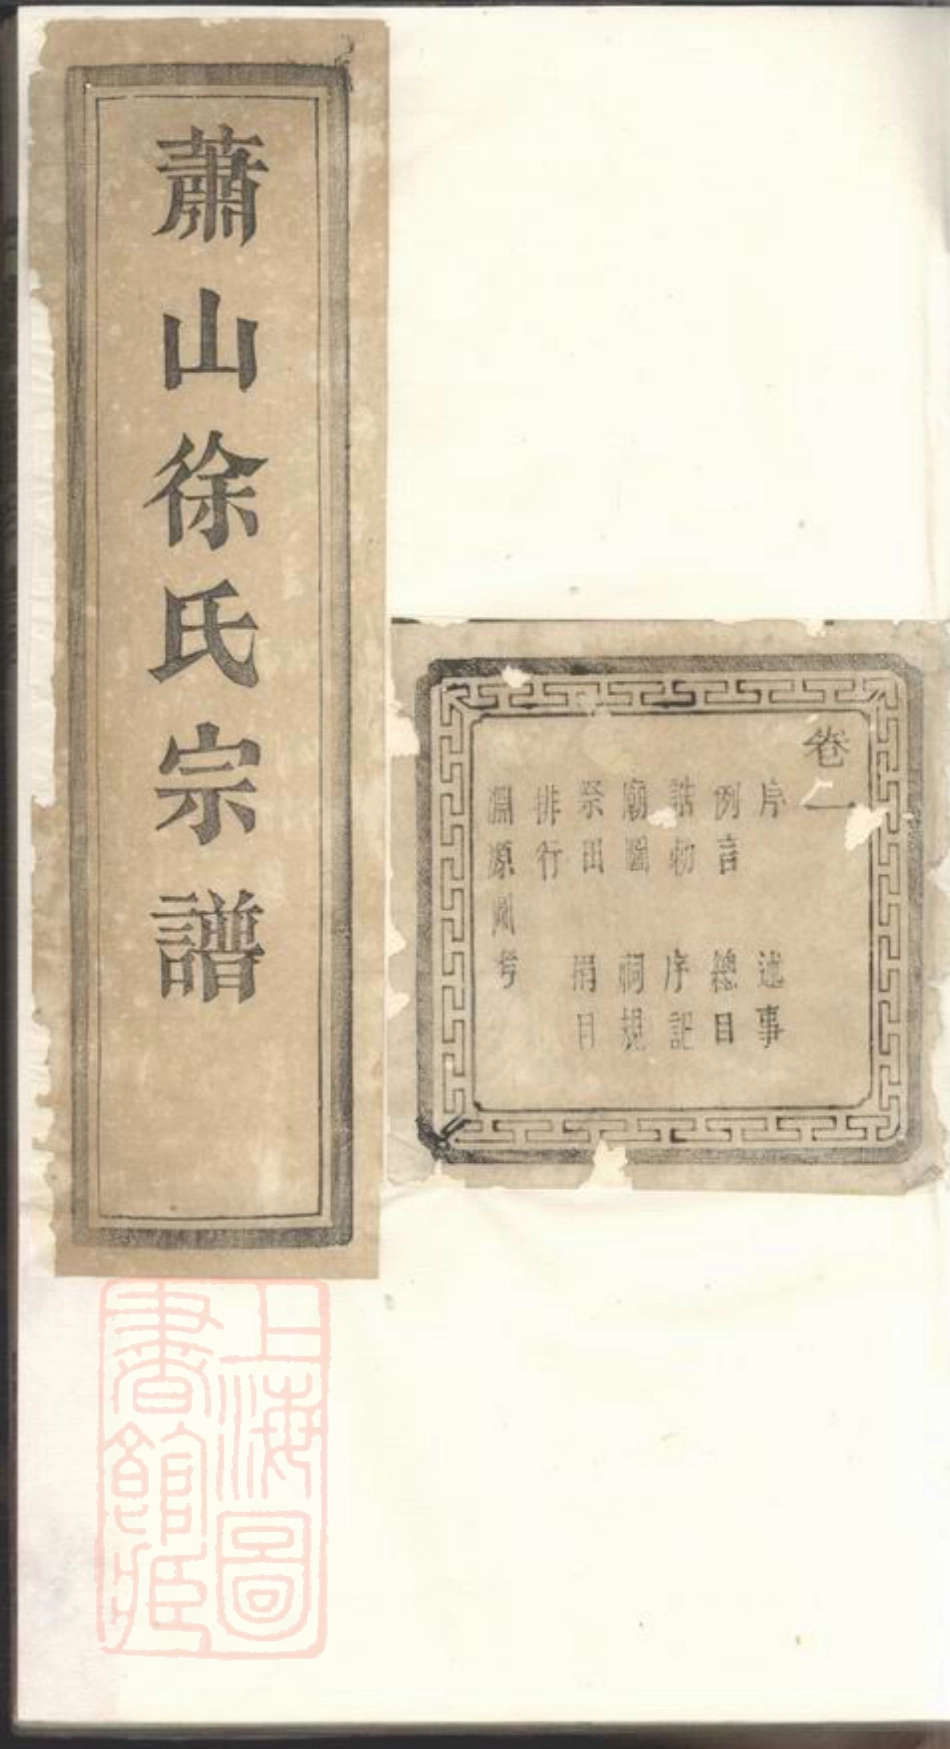 蕭山徐氏宗譜
卷一
序 述事
例言 總目
誥勅 序記
廟圖 祠規
祭田 捐目
排行
淵源 考
上海圖
書館藏